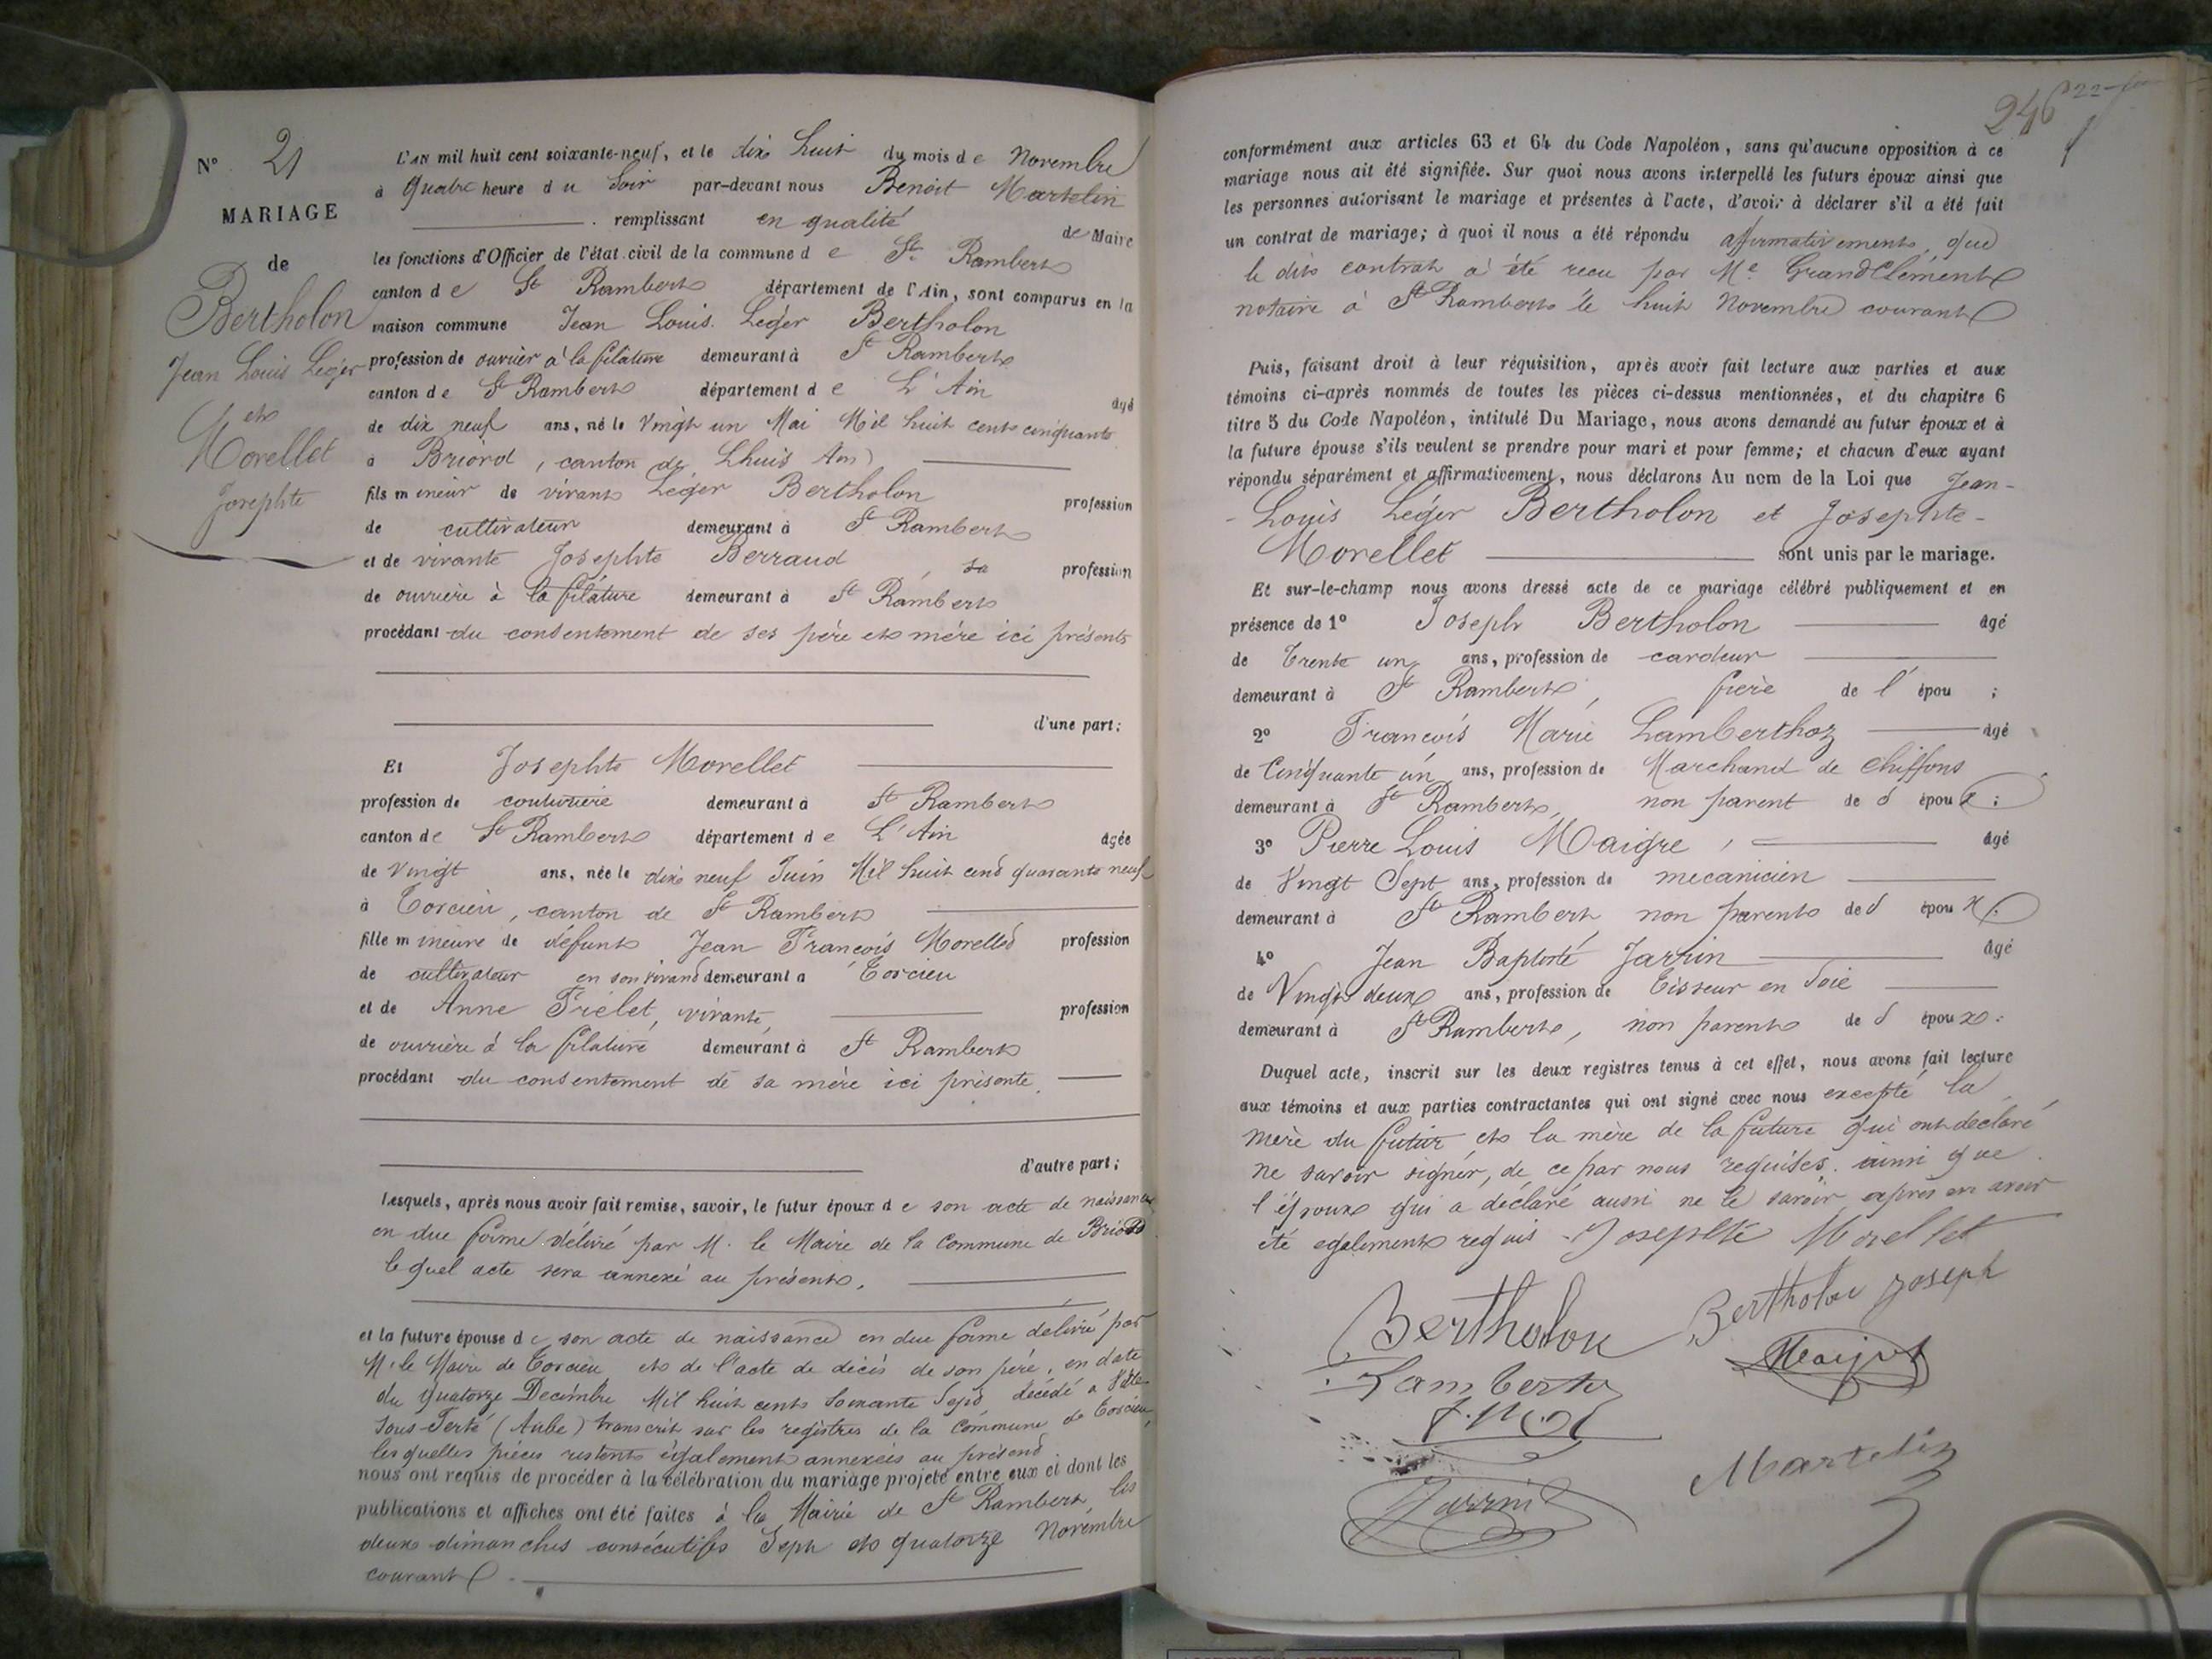 N° 21
MARIAGE
de
Bertholon
Jean Louis Léger
et
Morellet
Josephte
L'AN mil huit cent soixante-neuf, et le dix huit du mois de Novembre
à quatre heure du Soir par-devant nous Benoit Martelin
remplissant en qualité de Maire
les fonctions d'Officier de l'état civil de la commune de St Rambert
canton de St Rambert département de l'Ain, sont comparus en la
maison commune Jean Louis Léger Bertholon
profession de ouvrier à la filature demeurant à St Rambert
canton de St Rambert département de L'Ain âgé
de dix neuf ans, né le Vingt un Mai Mil huit cent cinquante
à Briord, canton de Lhuis Ain)
fils mineur de vivant Léger Bertholon profession
de cultivateur demeurant à St Rambert
et de vivante Josephte Berraud, sa profession
de ouvrière à la filature demeurant à St Rambert
procédant du consentement de ses père et mère ici présents
d'une part;
Et Josephte Morellet
profession de couturière demeurant à St Rambert
canton de St Rambert département de L'Ain âgée
de vingt ans, née le dix neuf Juin Mil huit cent quarante neuf
à Torcieu, canton de St Rambert
fille mineure de défunt Jean François Morellet profession
de cultivateur en son vivant demeurant a Torcieu
et de Anne Trielet, vivante, profession
de ouvrière à la filature demeurant à St Rambert
procédant du consentement de sa mère ici présente.
d'autre part;
Lesquels, après nous avoir fait remise, savoir, le futur époux de son acte de naissance
en due forme délivré par M. le Maire de la Commune de Briord
lequel acte sera annexé au présent.
et la future épouse de son acte de naissance en due forme délivré par
M. le Maire de Torcieu et de l'acte de décès de son père, en date
du quatorze Décembre Mil huit cent soixante Sept décédé a Ville
sous Ferté (Aube) transcrit sur les registres de la Commune de Torcieu,
lesquelles pièces restent également annexées au présent
nous ont requis de procéder à la célébration du mariage projeté entre eux et dont les
publications et affiches ont été faites à la Mairie de St Rambert les
deux dimanches consécutifs Sept et quatorze Novembre
courant.
246
conformément aux articles 63 et 64 du Code Napoléon, sans qu'aucune opposition à ce
mariage nous ait été signifiée. Sur quoi nous avons interpellé les futurs époux ainsi que
les personnes autorisant le mariage et présentes à l'acte, d'avoir à déclarer s'il a été fait
un contrat de mariage; à quoi il nous a été répondu affirmativement, que
le dit contrat a été recu par Me GrandClément
notaire à St Rambert le huit Novembre courant
Puis, faisant droit à leur réquisition, après avoir fait lecture aux parties et aux
témoins ci-après nommés de toutes les pièces ci-dessus mentionnées, et du chapitre 6
titre 5 du Code Napoléon, intitulé Du Mariage, nous avons demandé au futur époux et à
la future épouse s'ils veulent se prendre pour mari et pour femme; et chacun d'eux ayant
répondu séparément et affirmativement, nous déclarons Au nom de la Loi que Jean-
-Louis Léger Bertholon et Josephte-
Morellet sont unis par le mariage.
Et sur-le-champ nous avons dressé acte de ce mariage célébré publiquement et en
présence de 1° Joseph Bertholon âgé
de Trente un ans, profession de cardeur
demeurant à St Rambert, frère de l'épou ;
2° François Marie Lamberthoz âgé
de Cinquante un ans, profession de Marchand de Chiffons
demeurant à St Rambert, non parent de d époux ;
3° Pierre Louis Maigre, âgé
de Vingt Sept ans, profession de mecanicien
demeurant à St Rambert, non parent de d époux ;
4° Jean Baptiste Jarrin âgé
de Vingt deux ans, profession de Tisseur en Soie
demeurant à St Rambert, non parent de d époux.
Duquel acte, inscrit sur les deux registres tenus à cet effet, nous avons fait lecture
aux témoins et aux parties contractantes qui ont signé avec nous excepté la
mère du futur et la mère de la future qui ont declaré
ne savoir signer, de ce par nous requises. ainsi que
l'époux qui a déclaré aussi ne le savoir, après en avoir
été egalement requis. Josephte Morellet
Bertholon Bertholon Joseph
Maigre
Lambertoz
F.M.
Jarrin
Martelin